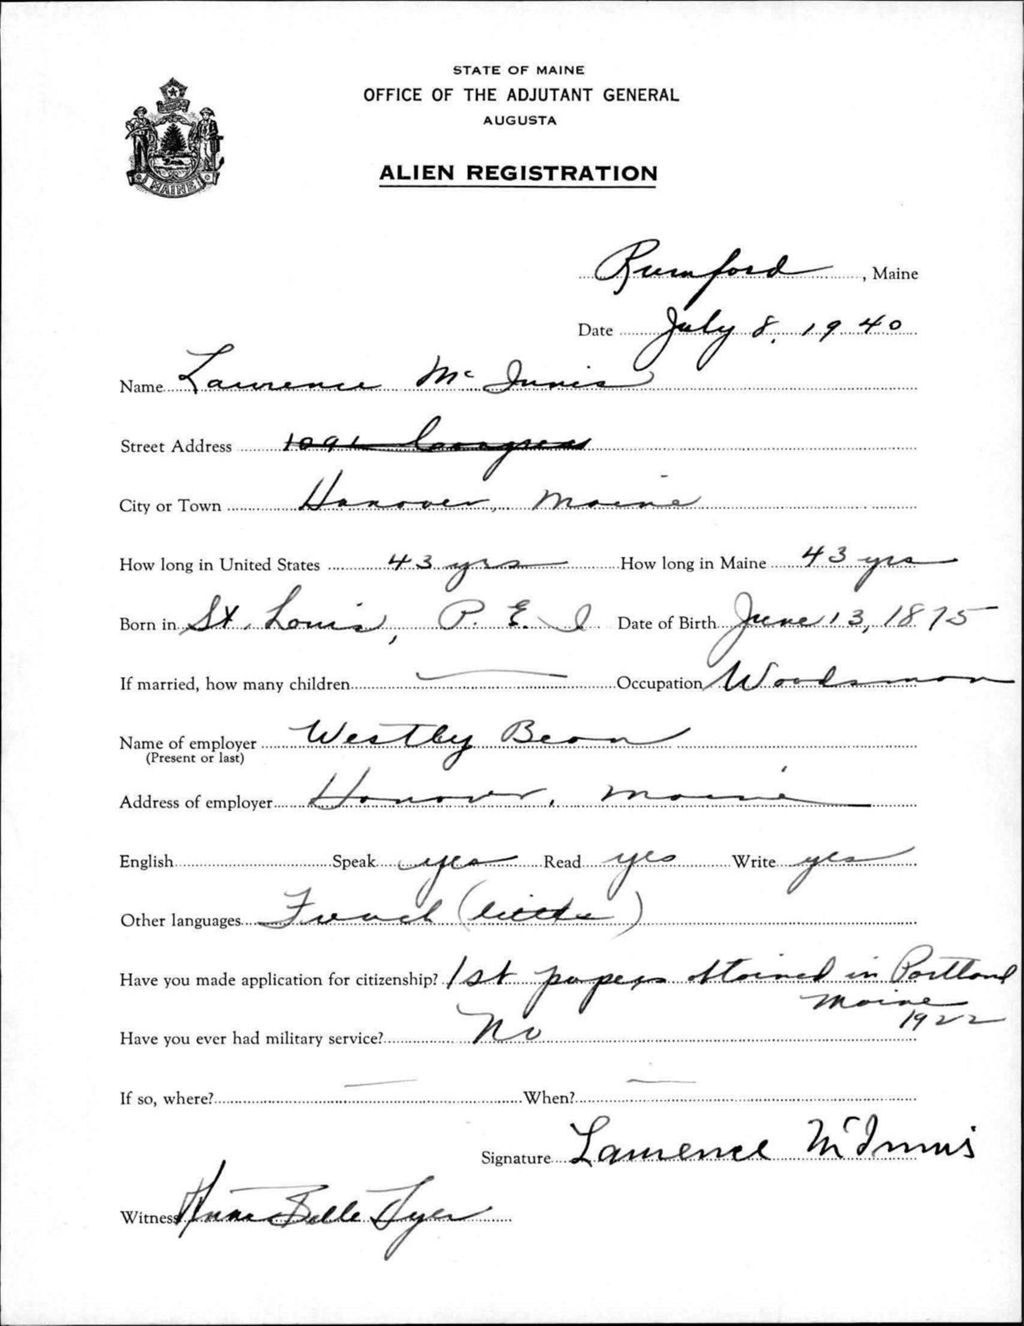 STATE OF MAINE
OFFICE OF THE ADJUTANT GENERAL
AUGUSTA
ALIEN REGISTRATION
MAINE
Rumford, Maine
Date July 8, 1940
Name Lawrence Mc Innis
Street Address 1091 Congress
City or Town Hanover, Maine
How long in United States 43 yrs How long in Maine 43 yrs
Born in St. Louis, P. E. I Date of Birth June 13, 1875
If married, how many children — Occupation Woodsman
Name of employer Westley Bean
(Present or last)
Address of employer Hanover, Maine
English Speak yes Read yes Write yes
Other languages French (little)
Have you made application for citizenship? 1st papers attained in Portland
Maine
1922
Have you ever had military service? No
If so, where? — When? —
Signature Lawrence McInnis
Witness Anna Belle Dyer